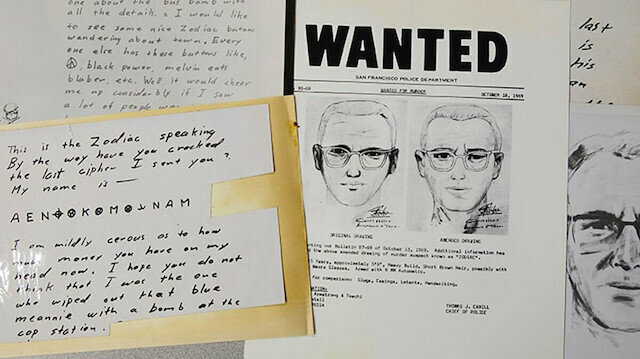 one about the bus bomb with
all the details. I would like
to see some nice Zodiac butons
wandering about town. Every
one else has these buttons like,
black power, melvin eats
blaber, etc. Well it would cheer
me up considerbly if I saw
a lot of people
This is the Zodiac speaking
By the way have you cracked
the last cipher I sent you?
My name is —
I am mildly cerous as to how
much money you have on my
head now. I hope you do not
think that I was the one
who wiped out that blue
meannie with a bomb at the
cop station.
WANTED
SAN FRANCISCO POLICE DEPARTMENT
90-69
WANTED FOR MURDER
OCTOBER 18, 1969
ORIGINAL DRAWING
AMENDED DRAWING
our Bulletin 87-69 of October 13, 1969. Additional information has
the above amended drawing of murder suspect known as "ZODIAC".
Years, Approximately 5'8", Heavy Build, Short Brown Hair, possibly with
Wears Glasses. Armed with 9 MM Automatic.
for comparison: Slugs, Casings, Latents, Handwriting.
Armstrong & Toschi
THOMAS J. CAHILL
CHIEF OF POLICE
last
is
his